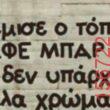 εμισε ο τόπ
ΦΕ ΜΠΑΡ
δεν υπάρχ
λα χρώμα